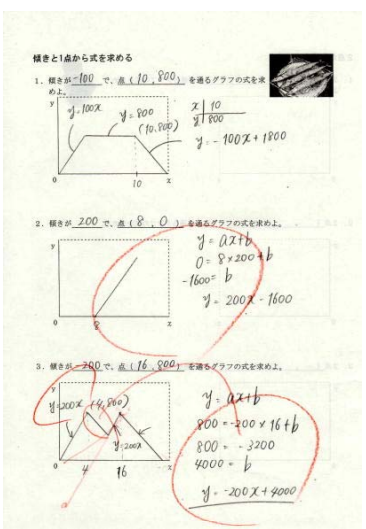 傾きと1点から式を求める
1. 傾きが -100 で、点 ( 10 , 800 ) を通るグラフの式を求めよ。
y
y=100x
y=800
(10,800)
0
10
x
x | 10
y | 800
y = -100x + 1800
2. 傾きが 200 で、点 ( 8 , 0 ) を通るグラフの式を求めよ。
y
0
8
x
y = ax+b
0 = 8×200+b
-1600 = b
y = 200x - 1600
3. 傾きが -200 で、点 ( 16 , 800 ) を通るグラフの式を求めよ。
y
y=200x
(4,800)
y=200x
0
4
16
x
y = ax+b
800 = -200 × 16+b
800 = -3200
4000 = b
y = -200x+4000